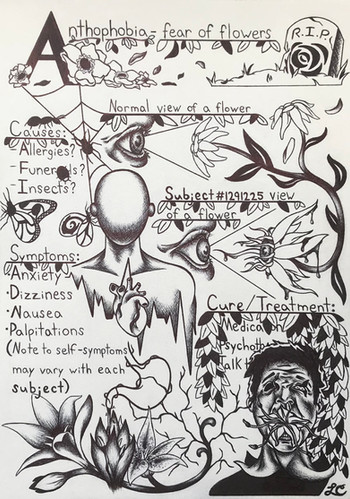 Anthophobia - fear of flowers
R.I.P.
Normal view of a flower
Causes:
- Allergies?
- Funerals?
- Insects?
Subject #1291225 view
of a flower
Symptoms:
· Anxiety
· Dizziness
· Nausea
· Palpitations
(Note to self-symptoms
may vary with each
subject)
Cure/Treatment:
Medication
Psychoth
alk t
LC